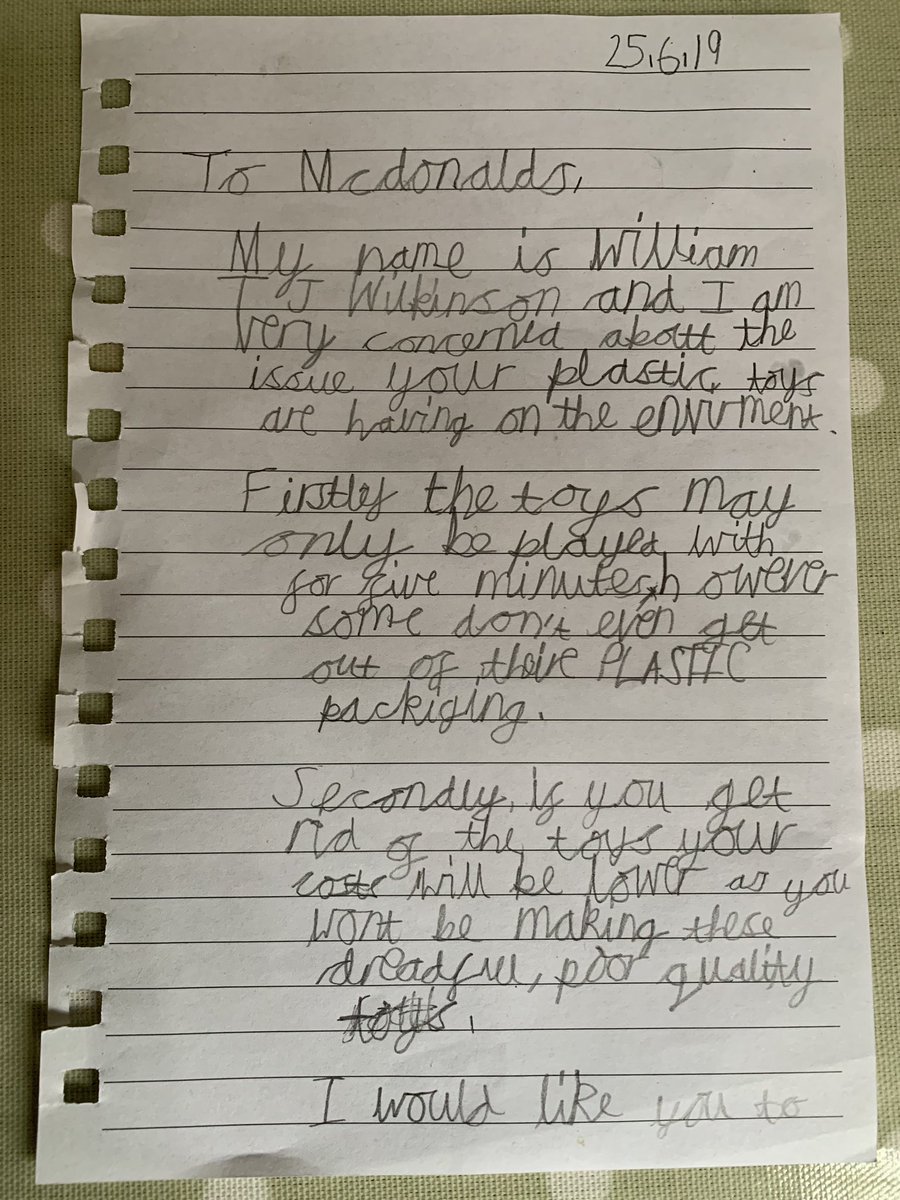 25.6.19
To Mcdonalds,
My name is William
T J Wilkinson and I am
very concerned about the
issue your plastic toys
are having on the envirment.
Firstly the toys may
only be played with
for five minutes, however
some don't even get
out of theire PLASTIC
packiging.
Secondly, if you get
rid of the toys your
costs will be lower as you
wont be making these
dreadful, poor quality
toys.
I would like you to